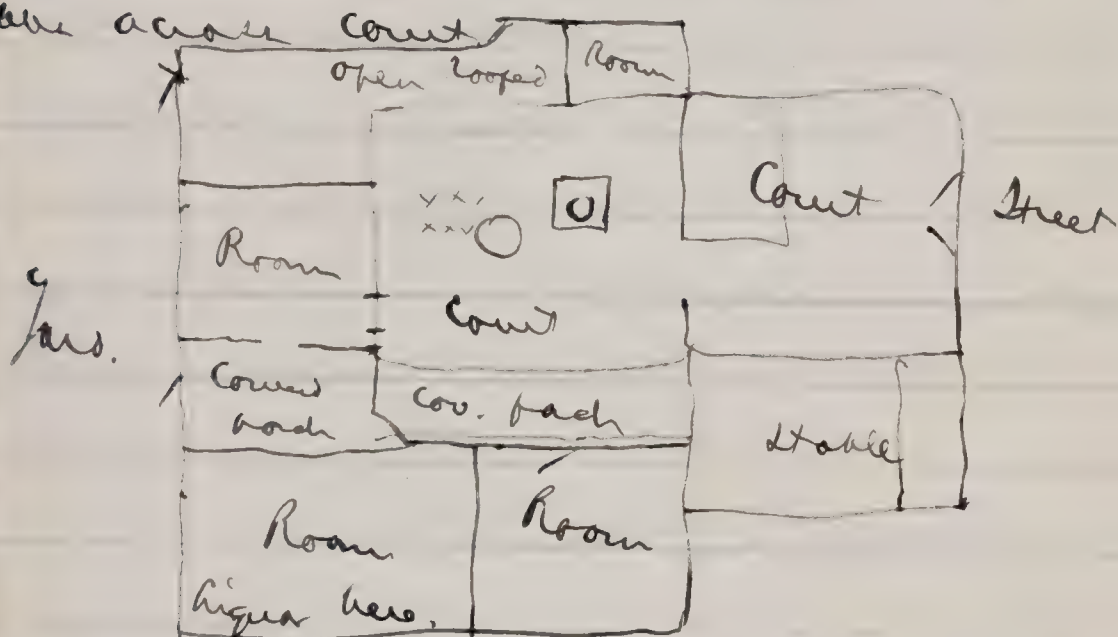 across court.
open roofed
Room
Court
Street
Room
Court
Covered
porch
Cov. porch
Stable
Room
Room
Liquor here.